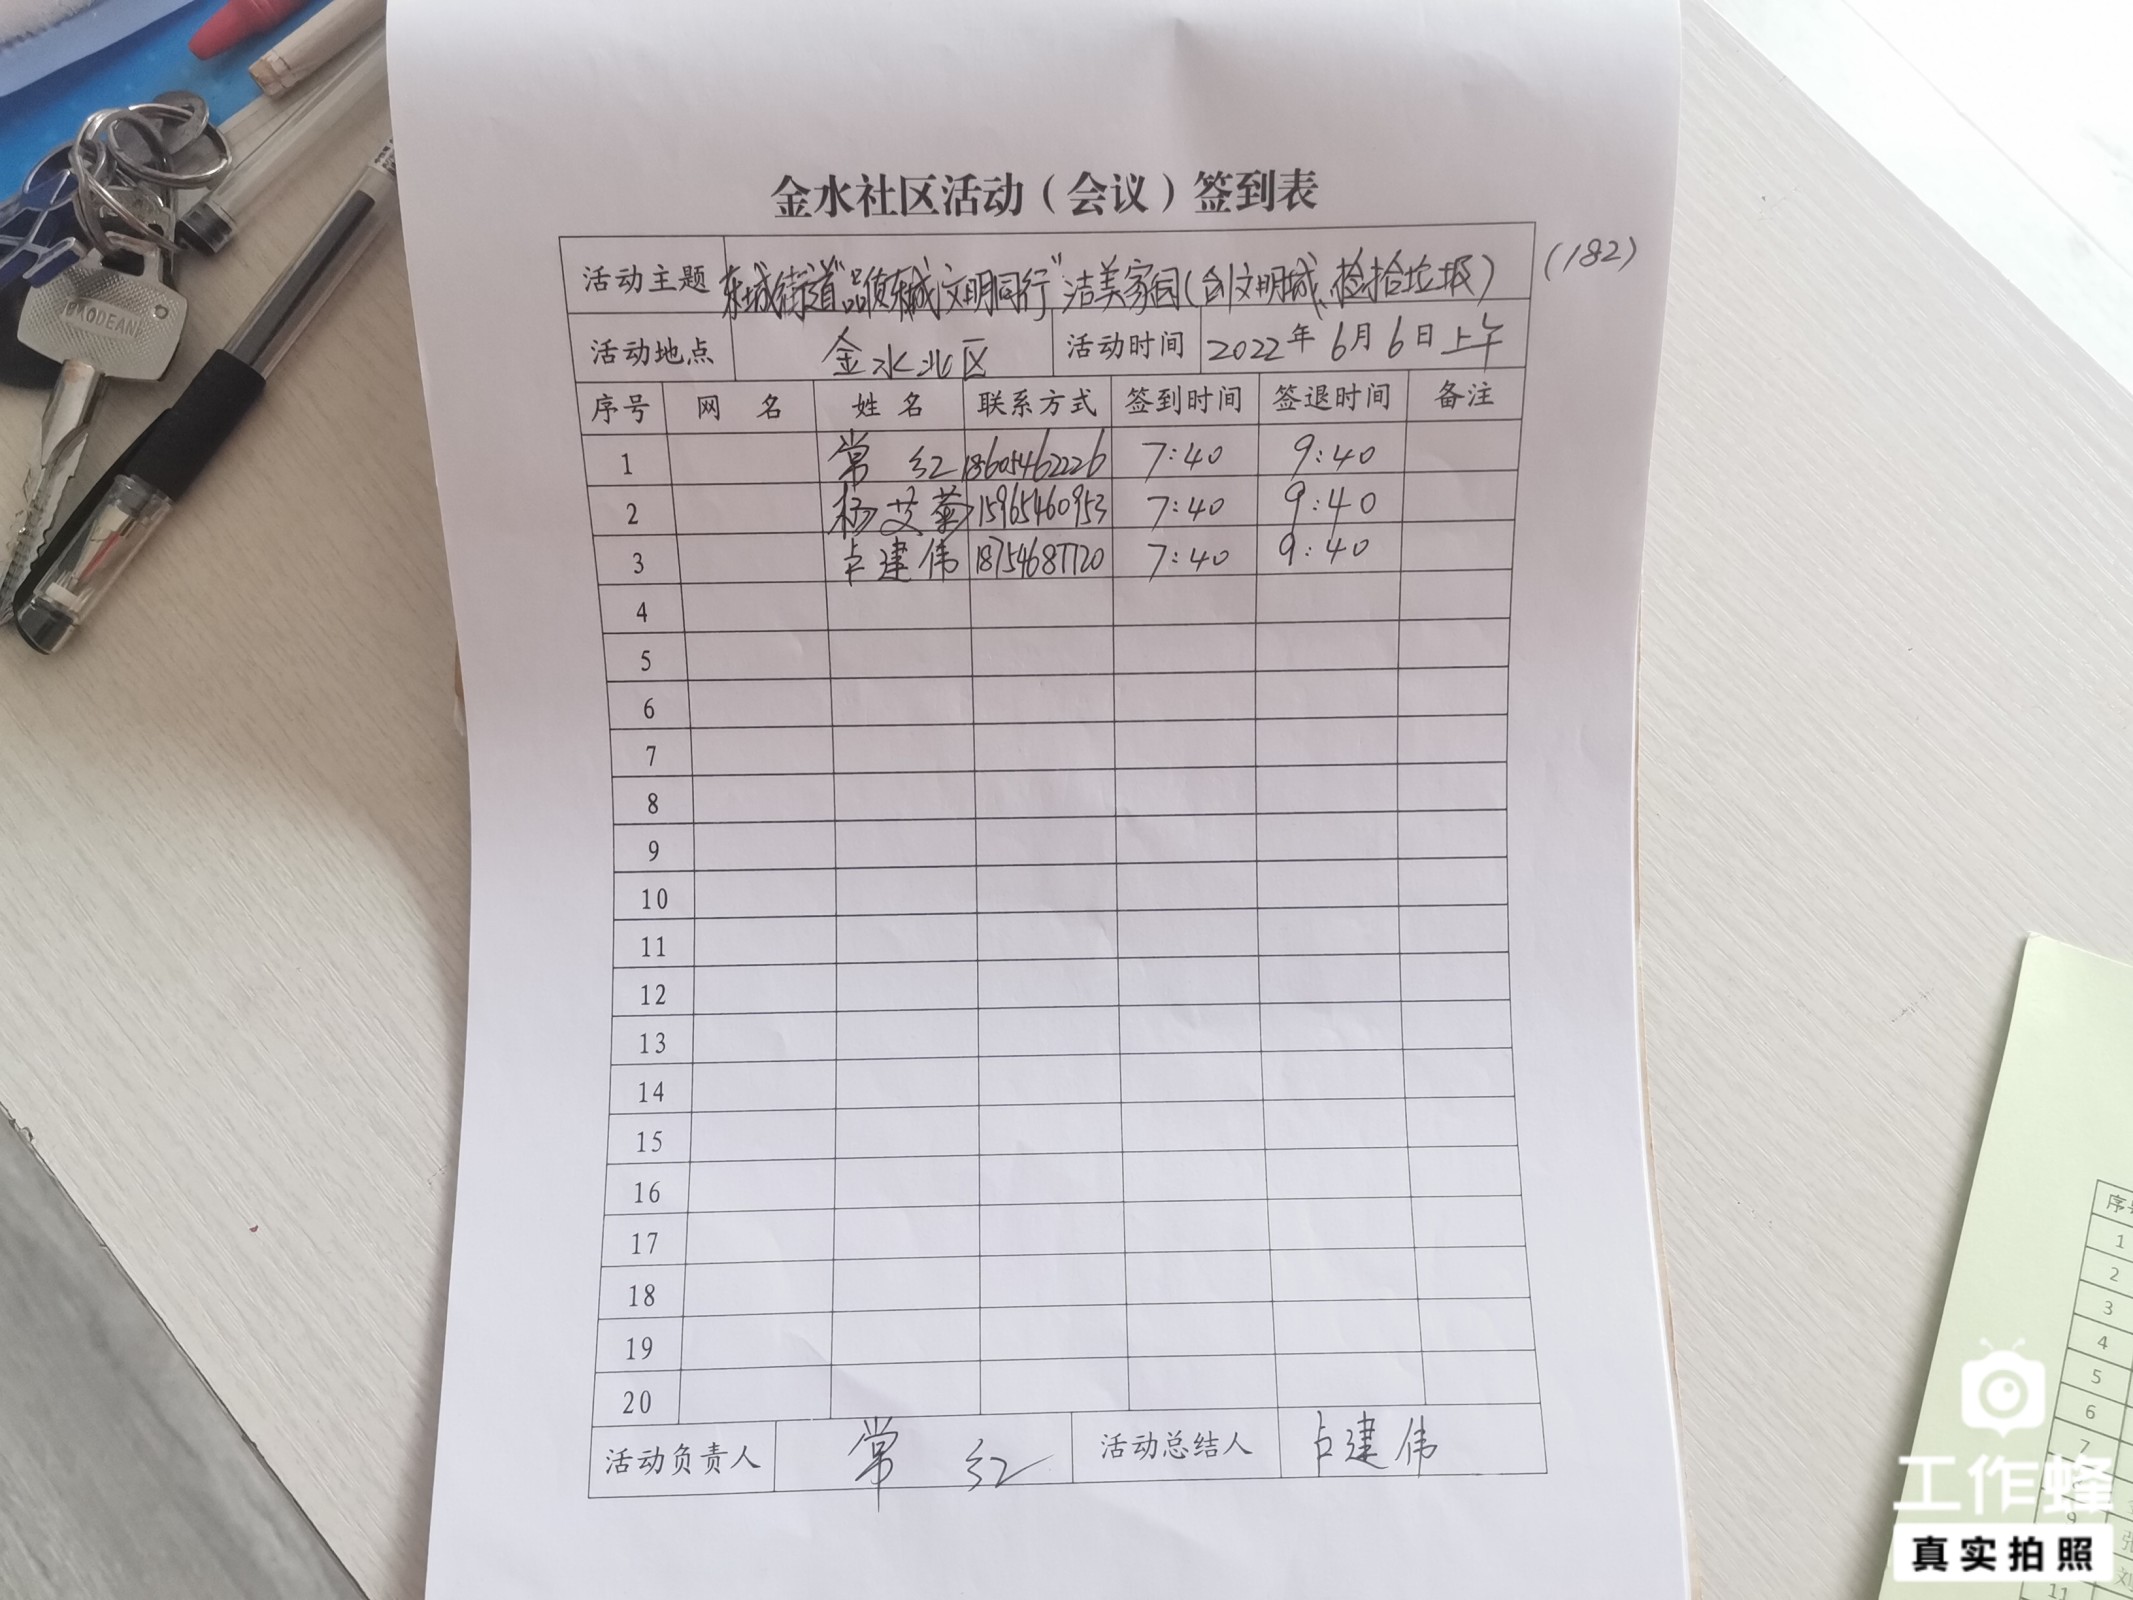 金水社区活动（会议）签到表
活动主题 东城街道"品质东城 文明同行"洁美家园(创文明城、捡拾垃圾) (182)
活动地点 金水北区 活动时间 2022年6月6日上午
序号 网 名 姓 名 联系方式 签到时间 签退时间 备注
1 常红 18605462226 7:40 9:40
2 杨艾菊 15965460953 7:40 9:40
3 占建伟 18754687720 7:40 9:40
4
5
6
7
8
9
10
11
12
13
14
15
16
17
18
19
20
活动负责人 常红 活动总结人 占建伟
BAODEAN
序号
1
2
3
4
5
6
7
9
11
工作蜂
真实拍照